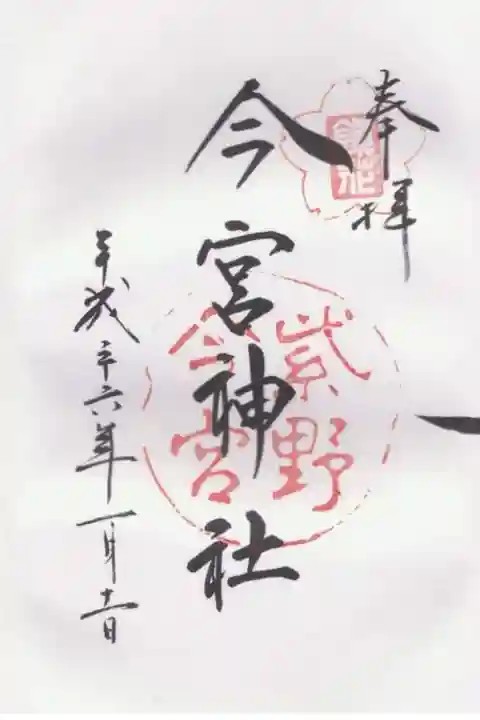 奉拝
紫野
今宮
今宮神社
平成二十六年一月十一日